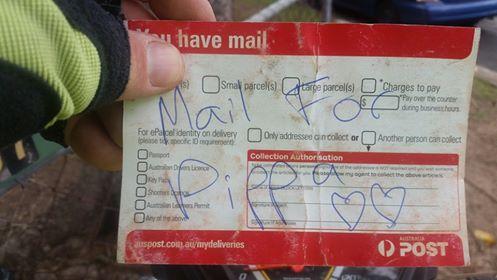 You have mail
Small parcel(s)
Large parcel(s)
*Charges to pay
$
*Pay over the counter
during business hours.
Mail For
For eParcel identity on delivery
(please tick specific ID requirement):
Only addressee can collect or
Another person can collect
Passport
Australian Drivers Licence
Key Pass
Shooters
Australian Learners Permit
Any of the above
Collection Authorisation
Pippa
auspost.com.au/mydeliveries
AUSTRALIA
POST